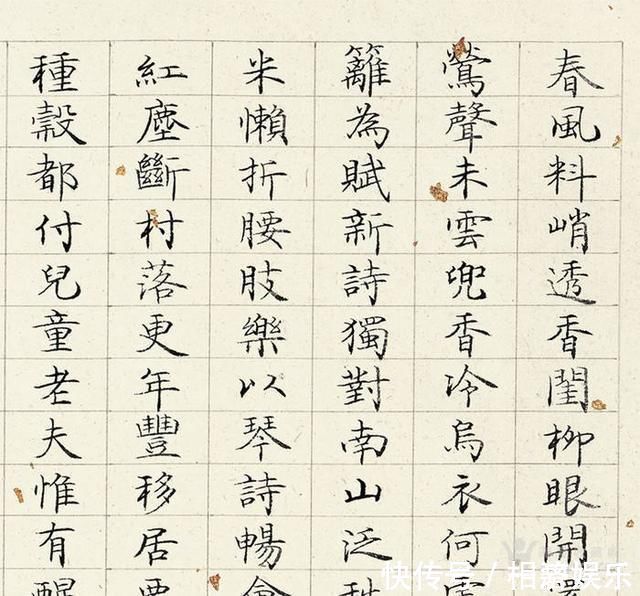 春風料峭透香閨柳眼開還
鶯聲未雲兜香冷烏衣何
籬為賦新詩獨對南山泛
米懶折腰肢樂以琴詩暢
紅塵斷村落更年豐移居
種穀都付兒童老夫惟有醒
快传号／相遇娱乐